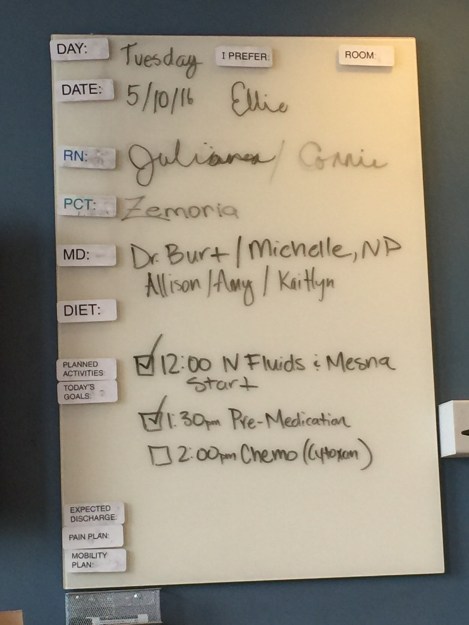 DAY: Tuesday I PREFER: ROOM:
DATE: 5/10/16 Ellie
RN: Julianna / Connie
PCT: Zemoria
MD: Dr. Burt / Michelle, NP
Allison / Amy / Kaitlyn
DIET:
PLANNED
ACTIVITIES:
TODAY'S
GOALS:
12:00 IV Fluids & Mesna
Start
1:30pm Pre-Medication
2:00pm Chemo (Cytoxan)
EXPECTED
DISCHARGE:
PAIN PLAN:
MOBILITY
PLAN: